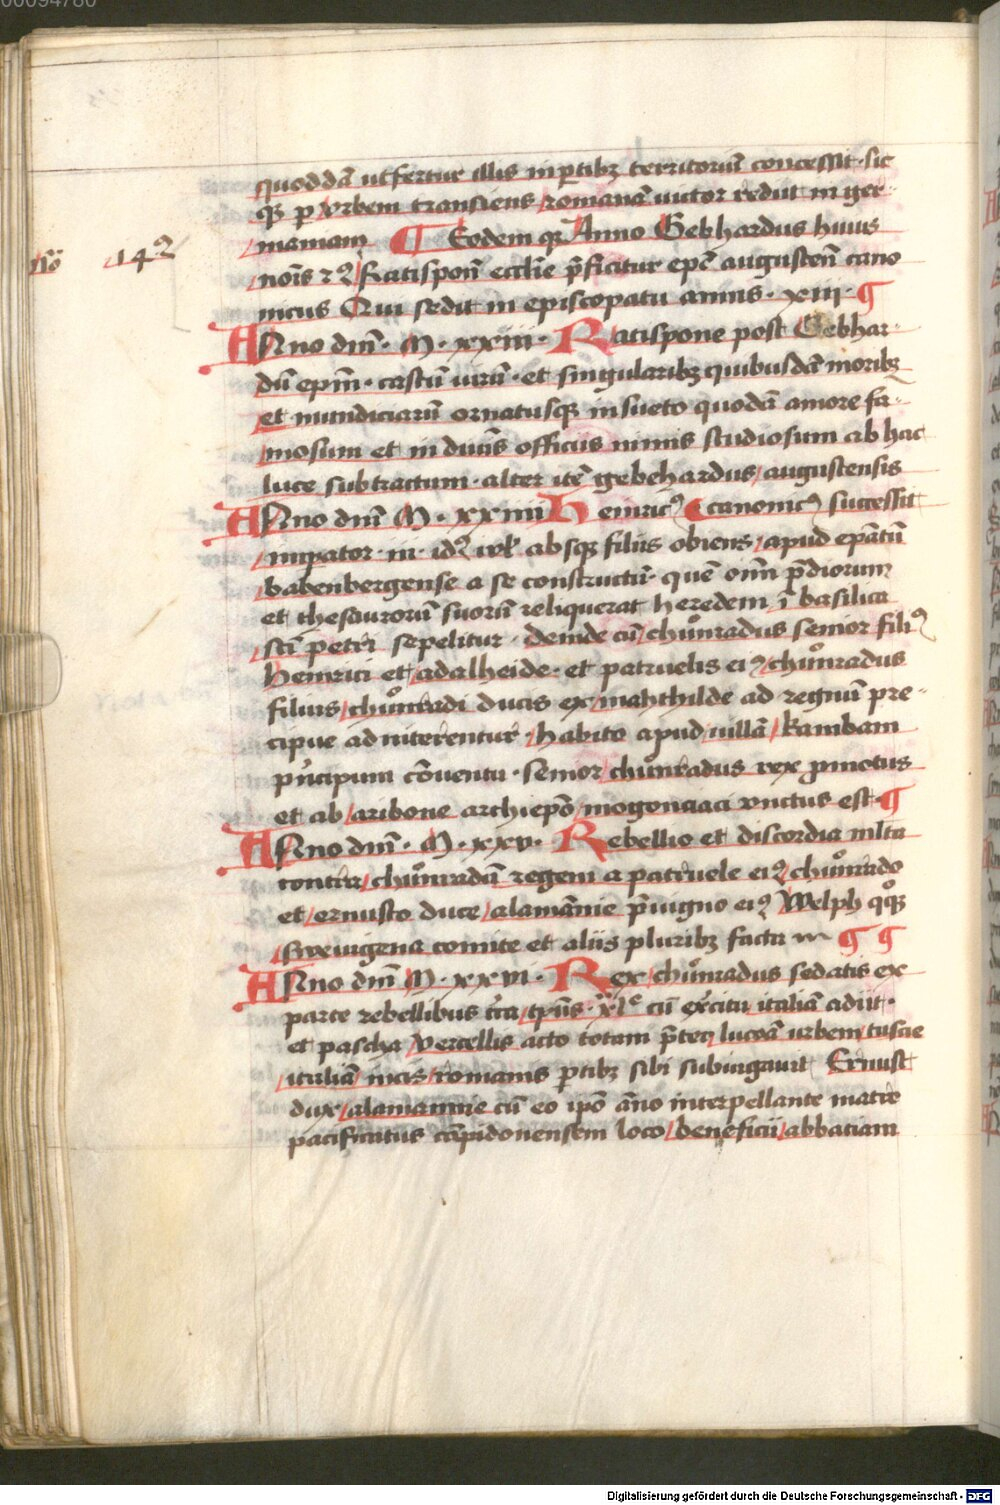 00094780
quoddā ut fertur illis in ꝑtibꝫ territoriū concessit · sic
qꝫ ꝑ vrbem transiens romanā uictor redut in ger
maniam ¶ Eodem qꝫ Anno Gebhardus huius
nōis 2ꝰ Ratisponn̄ eccl̄ie p̄ficitur epc̄ augusten̄ cano
nicus Qui sedit in episcopatu annis · xiii · ¶
Anno dnī · M · xxiii · Ratispone post Gebhar
dū epm̄ · castū uirū · et singularibꝫ quibusdā moribꝫ
et mundiciarū ornatusqꝫ insueto quodā amore fa
mosum et in diuīs officiis nimis studiosum ab hac
luce subtractum · alter itē gebehardus augustensis
Anno dnī M · xxiiii Heinricꝰ canonicꝰ successit
imꝑator · iii · idꝰ iul' absqꝫ filiis obiens apud epātū
babenbergense a se constructū · quē om̄ p̄diorum
et thesaurorū suorū reliquerat heredem ī basilica
scī petri sepelitur · deinde cū chůnradus senior filiꝰ
Heinrici et adalheide · et patruelis eiꝰ chůnradus
filius chůnradi ducis ex mahthilde ad regnū pre
cipue adniterentur · habito apud uillā kambam
pⁱncipum cōuentu · senior chůnradus rex ꝓmotus
et ab aribone archiepō mogonciaci vnctus est ¶
Anno dnī · M · xxv · Rebellio et discordia mlta
contra chůnradū regem a patruele eiꝰ chůnrado
et ernusto duce alamānie p̄uigno eiꝰ Welph qͦqꝫ
sweuigena comite et aliis pluribꝫ facta ¶ ¶
Anno dnī M · xxvi · Rex chůnradus sedatis ex
parte rebellibus cū exercitu italiā adiit ·
et pascha vercellis acto totam p̄ter lucā urbem tuscie
italiā romanis ꝑtibꝫ sibi subiugauit Ernust
dux alamannie cū eo ipō āno interpellante matre
pacificatus cāpidonensem loco beneficii abbatiam
Nō 142
Digitalisierung gefördert durch die Deutsche Forschungsgemeinschaft - DFG